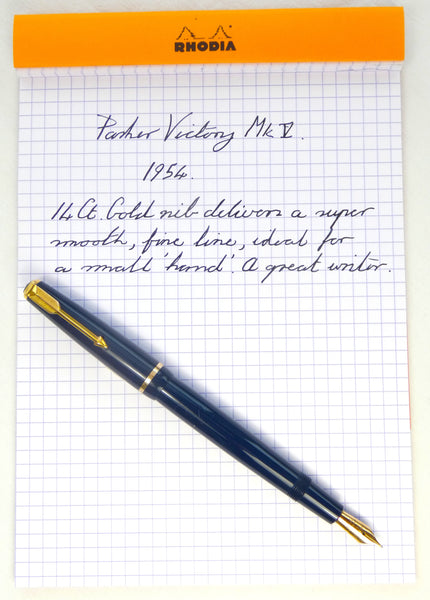 RHODIA
Parker Victory Mk V.
1954.
14 Ct. Gold nib delivers a super
smooth, fine line, ideal for
a small 'hand'. A great writer.